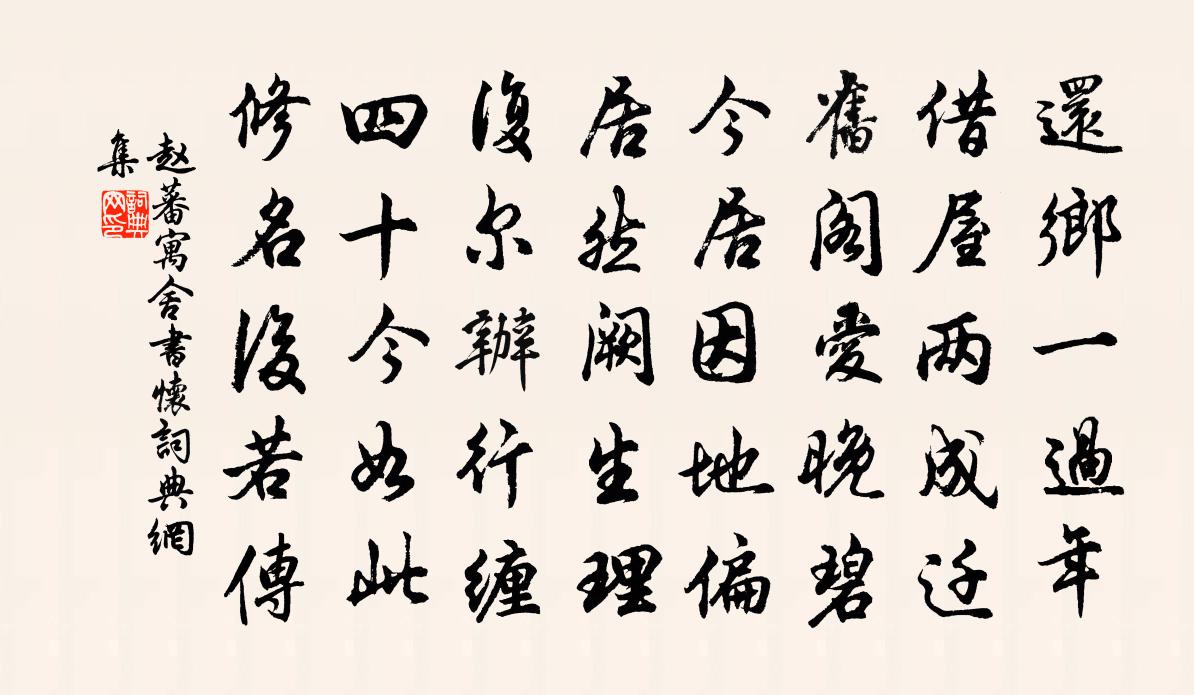 還鄉一過年
借屋两成迁
舊阁愛晚碧
今居因地偏
居然阙生理
復尔辦行缠
四十今如此
修名後若傳
赵蕃寓舍書懷詞典網
集
詞典
网印